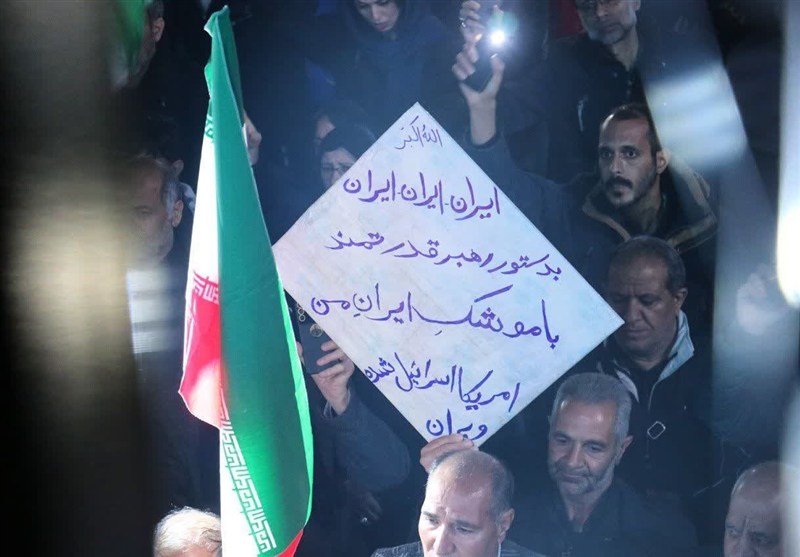 الله اکبر
ایران.ایران.ایران
بدستور رهبر قدرتمند
با موشکِ ایرانِ من
امریکا اسرائیل شدن
ویران